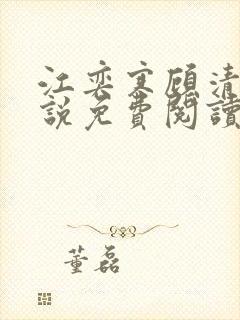 江奕寒顧清
說免費閱讀
董磊